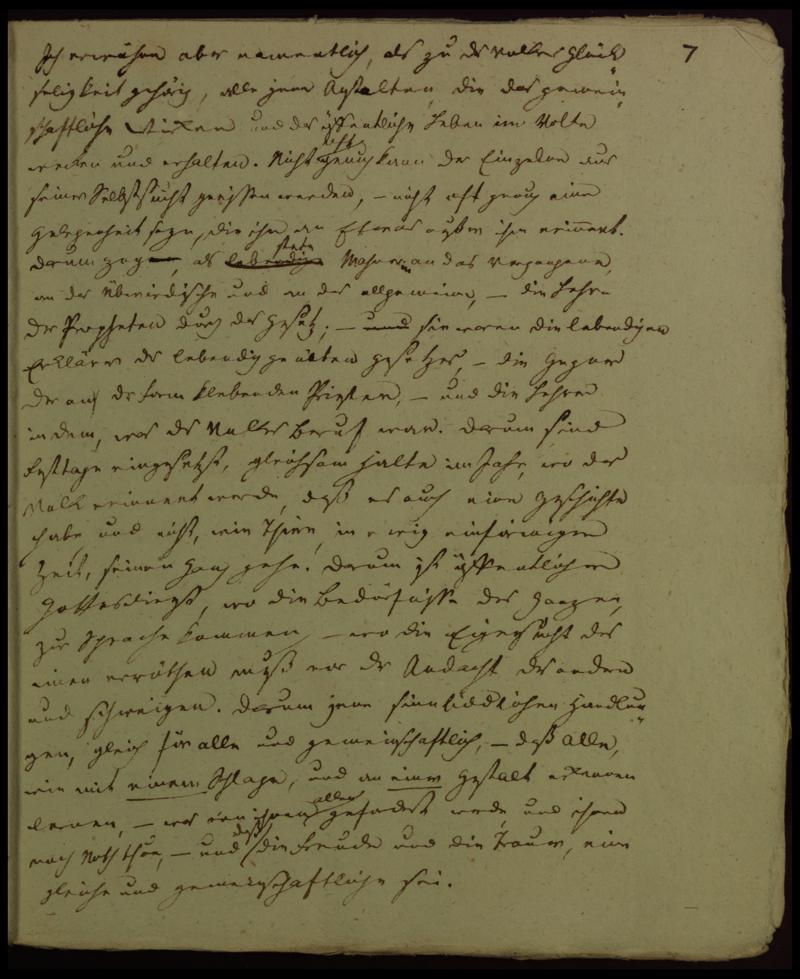 7
Ich erwähne aber namentlich, als zu des Volkes Glück
seligkeit gehörig, alle jene Anstalten, die das gemein
schaftliche Wirken und das öffentliche Leben im Volke
wecken und erhalten. Nicht genug kann der Einzelne aus
seiner Selbstsucht gerissen werden, – nicht oft genug eine
Gelegenheit seyn, die ihn an Etwas außer ihm erinnert.
Darum als lebendige stete Mahner an das Vergangene,
an das Überirdische und an das allgemeine, – die Lehre
der Propheten durch das Gesetz; – und sie waren die lebendigen
Erklärer des lebendig geübten Gesetzes, – die Gegner
der an der Form klebenden Priester, – und die Lehrer
in dem, was des Volkes Beruf war. Darum sind
Festtage eingesetzt, gleichsam Halte im Jahr, wo das
Volk erinnert werde, daß es auch eine Geschichte
habe und nicht, wie Thiere, in ewig einförmiger
Zeit, seinen Gang gehe. Darum ist öffentlicher
Gottesdienst, wo die Bedürfnisse des Ganzen,
zur Sprache kommen, – wo die Eigensucht des
einen erröthen muß vor der Andacht des andern
und schweigen. Darum jene sinnbildlichen Handlun
gen, gleich für alle und gemeinschaftlich, – daß alle,
wie mit einem Schlage, und an einer Gestalt erkennen
lernen, – was von ihnen allen gefodert werde, und ihnen
noch Noth thue, – und daß die Freude und die Trauer, eine
gleiche und gemeinschaftliche sei.